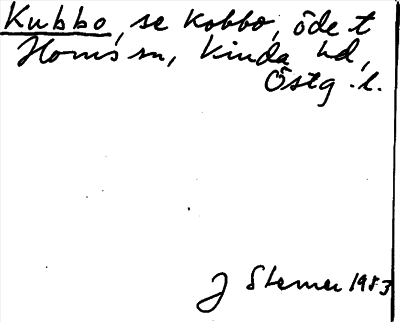 Kubbo, se kobbo, öde t
Horns sn, Kinda hd,
Östg. l.
J Sterner 1983